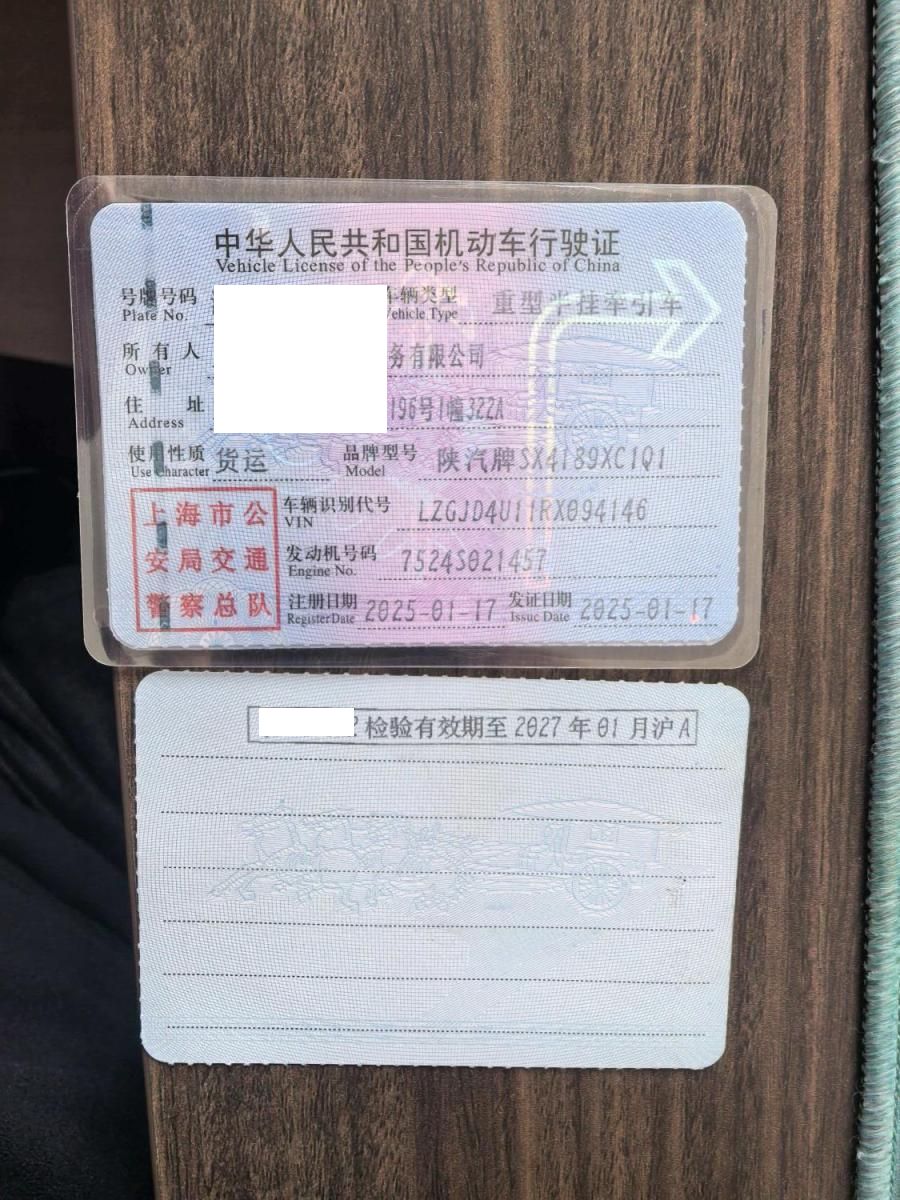 中华人民共和国机动车行驶证
Vehicle License of the People's Republic of China
号牌号码 车辆类型 重型半挂牵引车
Plate No. Vehicle Type
所有人 务有限公司
Owner
住址 196号1幢322A
Address
使用性质 货运 品牌型号 陕汽牌SX4189XC1Q1
Use Character Model
上海市公 车辆识别代号 LZGJD4U11RX094146
VIN
安局交通 发动机号码 7524S021457
Engine No.
警察总队 注册日期 2025-01-17 发证日期 2025-01-17
Register Date Issue Date
检验有效期至 2027 年 01 月沪A